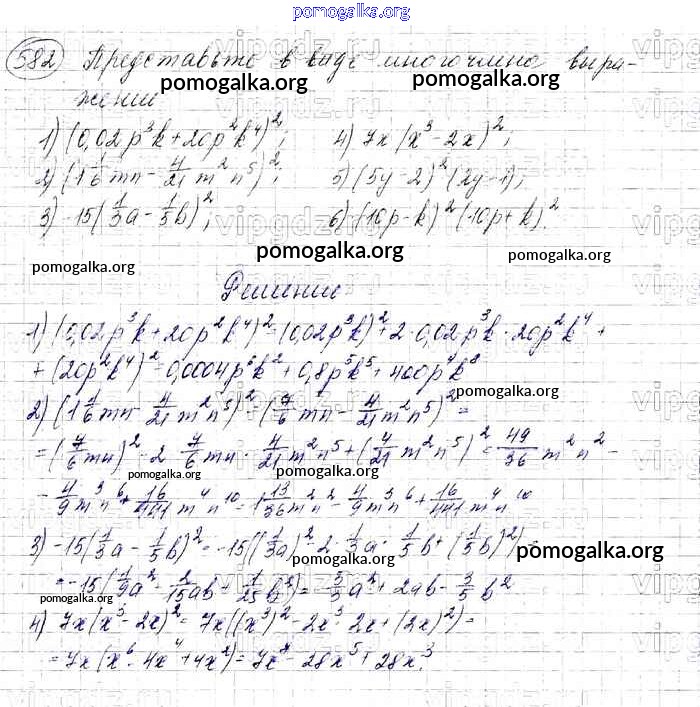 pomogalka.org
582 Представьте в виде многочлена выра-
pomogalka.org pomogalka.org
жение
1) (0,02p³k+20p²k⁴)²; 4) 7x(x³-2x)²;
2) (1 1/6 mn - 4/21 m²n⁵)²; 5) (5y-2)²(2y-1);
3) -15(1/3 a - 1/5 b)²; 6) (10p-k)²(10p+k)².
pomogalka.org pomogalka.org pomogalka.org
Решение
1) (0,02p³k+20p²k⁴)²=(0,02p³k)²+2·0,02p³k·20p²k⁴+
+(20p²k⁴)²=0,0004p⁶k²+0,8p⁵k⁵+400p⁴k⁸
pomogalka.org
2) (1 1/6 mn - 4/21 m²n⁵)²=(7/6 mn - 4/21 m²n⁵)²=
=(7/6 mn)²-2·7/6 mn·4/21 m²n⁵+(4/21 m²n⁵)²=49/36 m²n²-
pomogalka.org pomogalka.org
-4/9 m³n⁶+16/441 m⁴n¹⁰=1 13/36 m²n²-4/9 m³n⁶+16/441 m⁴n¹⁰
3) -15(1/3 a - 1/5 b)²=-15((1/3 a)²-2·1/3 a·1/5 b+(1/5 b)²)=
pomogalka.org pomogalka.org
=-15(1/9 a²-2/15 ab+1/25 b²)=-5/3 a²+2ab-3/5 b²
pomogalka.org
4) 7x(x³-2x)²=7x((x³)²-2x³·2x+(2x)²)=
=7x(x⁶-4x⁴+4x²)=7x⁷-28x⁵+28x³